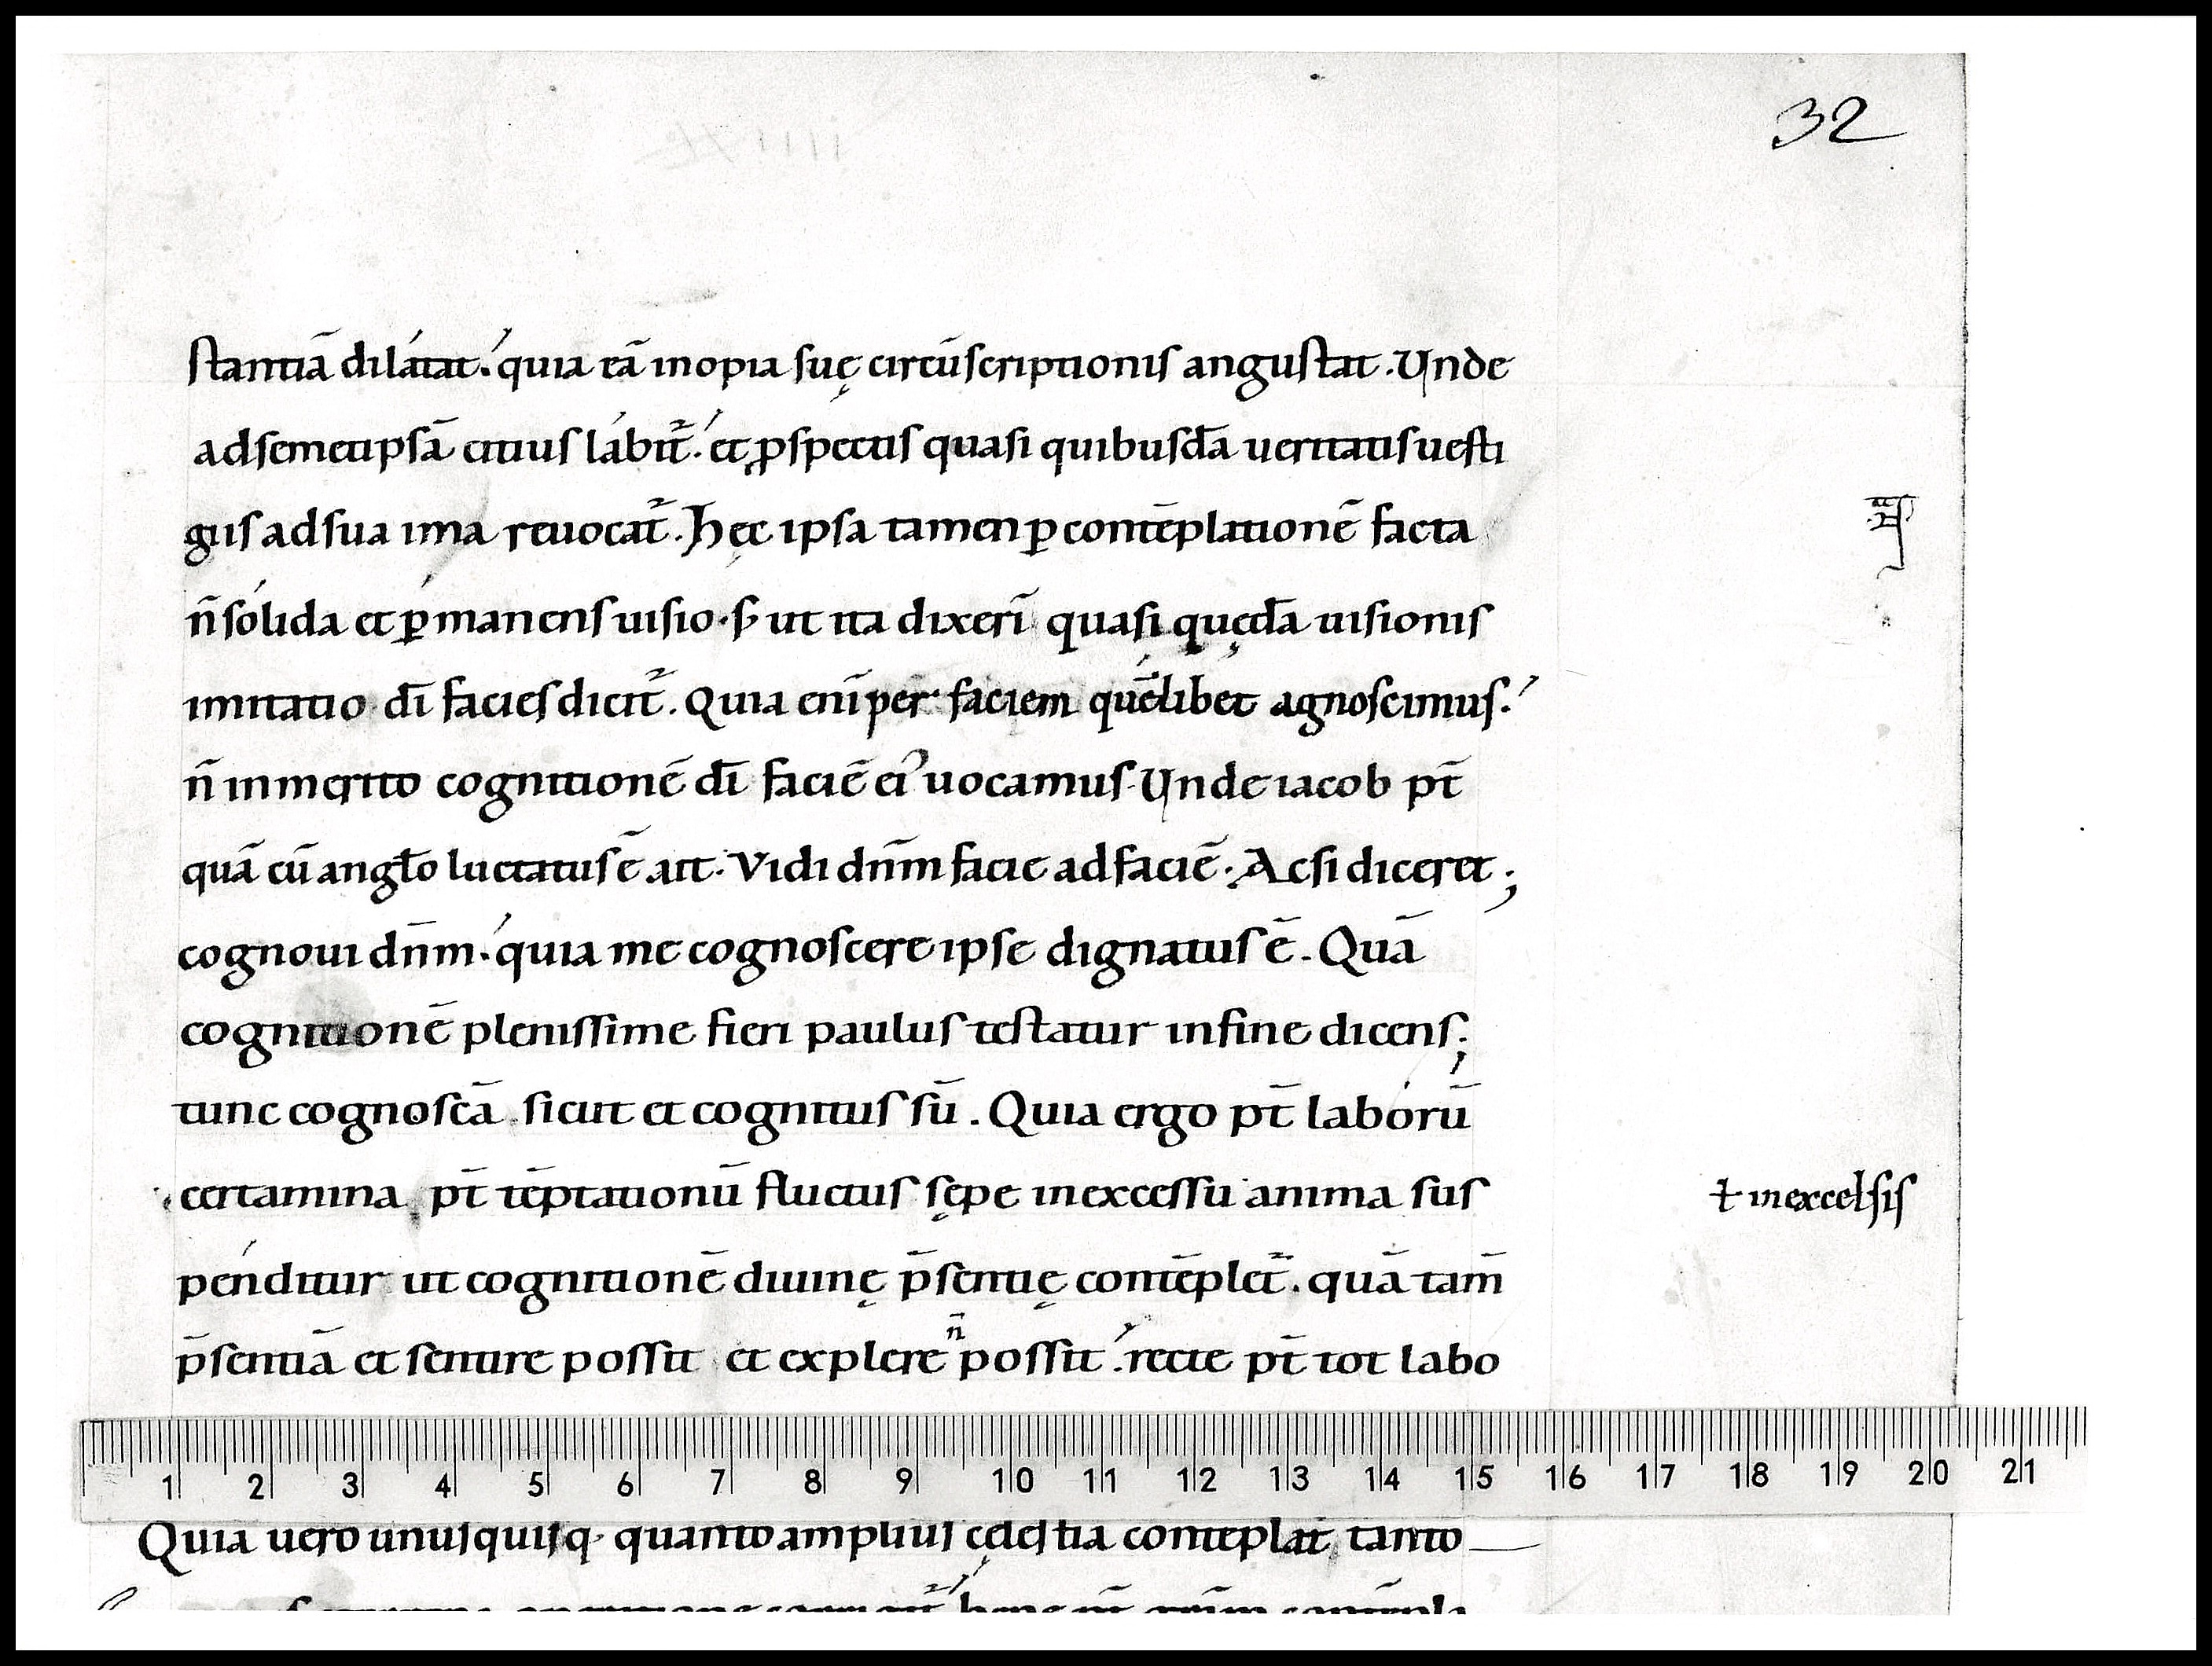 32
stantiā dilátat. quia eā inopia suę circūscriptionis angustat. Unde
adsemetipsā citius lábit᷑. et ꝑspectis quasi quibusdā ueritatis uesti
giis adsua ima reuocat᷑. Hęc ipsa tamen ꝑ contēplationē facta
n̄ sólida et ꝑmanens uisio. s; ut ita dixerī quasi quędā uisionis
imitatio dī facies dicit᷑. Quia enī per faciem quēlibet agnoscimus.
n̄ inmerito cognitionē dī faciē ei᷒ uocamus. Unde iacob pt̄
quā cū angło luctatus ē ait. Vidi dn̄m facie adfaciē. Acsi diceret;
cognoui dn̄m. quia me cognoscere ipse dignatus ē. Quā
cognitionē plenissime fieri paulus testatur infine dicens;
tunc cognoscā sicut et cognitus sū. Quia ergo pt̄ labórū
certamina pt̄ tēptationū fluctus sępe inexcessu anima sus
ł inexcelsis
pénditur ut cognitionē diuinę p̄sentię contēplet᷑. quā tam̄
p̄sentiā et sentire possit et explere n̄ possit. recte pt̄ tot labo
1 2 3 4 5 6 7 8 9 10 11 12 13 14 15 16 17 18 19 20 21
Quia uero unusquisq· quanto amplius cęlestia contēplat᷑, tanto